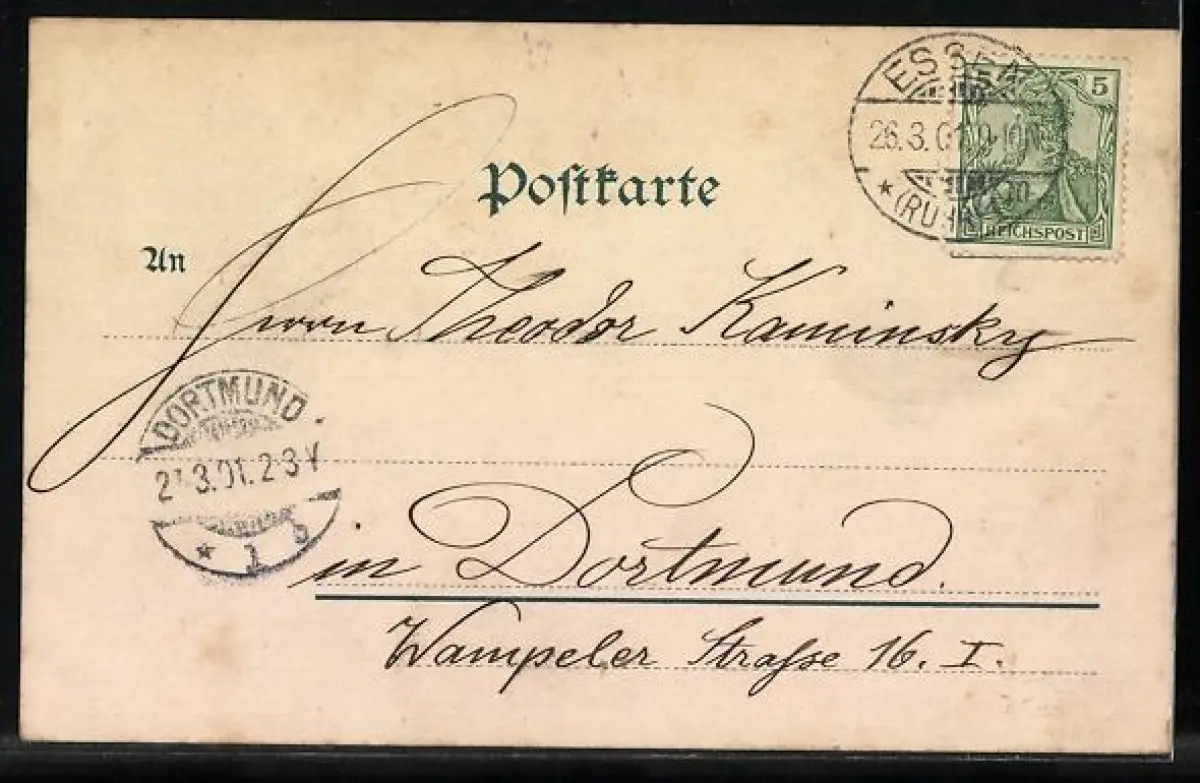 ESSEN
5 5
26.3.01.9-10N.
* (RUHR)
REICHSPOST
Postkarte
An
Herrn Theodor Kaminsky
DORTMUND
3.01.2-3V
* 1 b
in Dortmund.
Wampeler Straße 16. I.